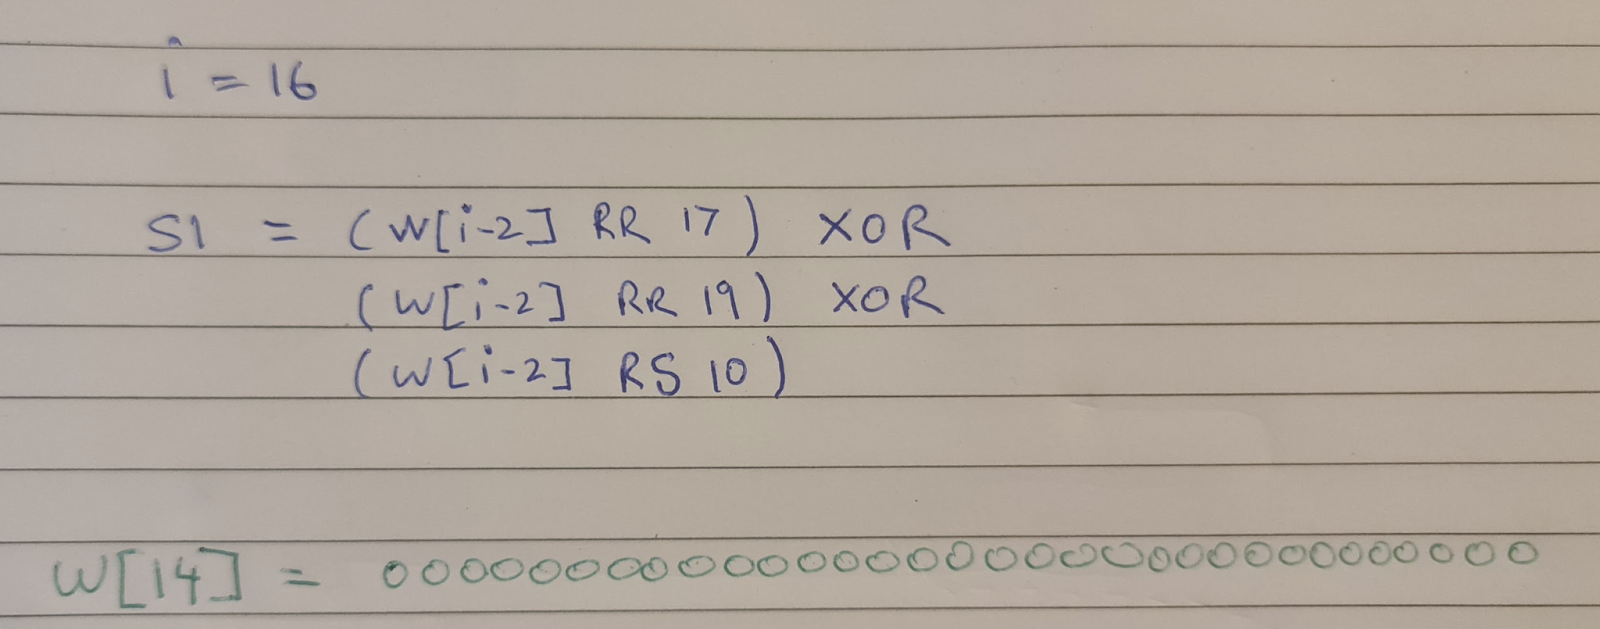 i = 16
S1 = (W[i-2] RR 17) XOR
(W[i-2] RR 19) XOR
(W[i-2] RS 10)
W[14] = 00000000000000000000000000000000